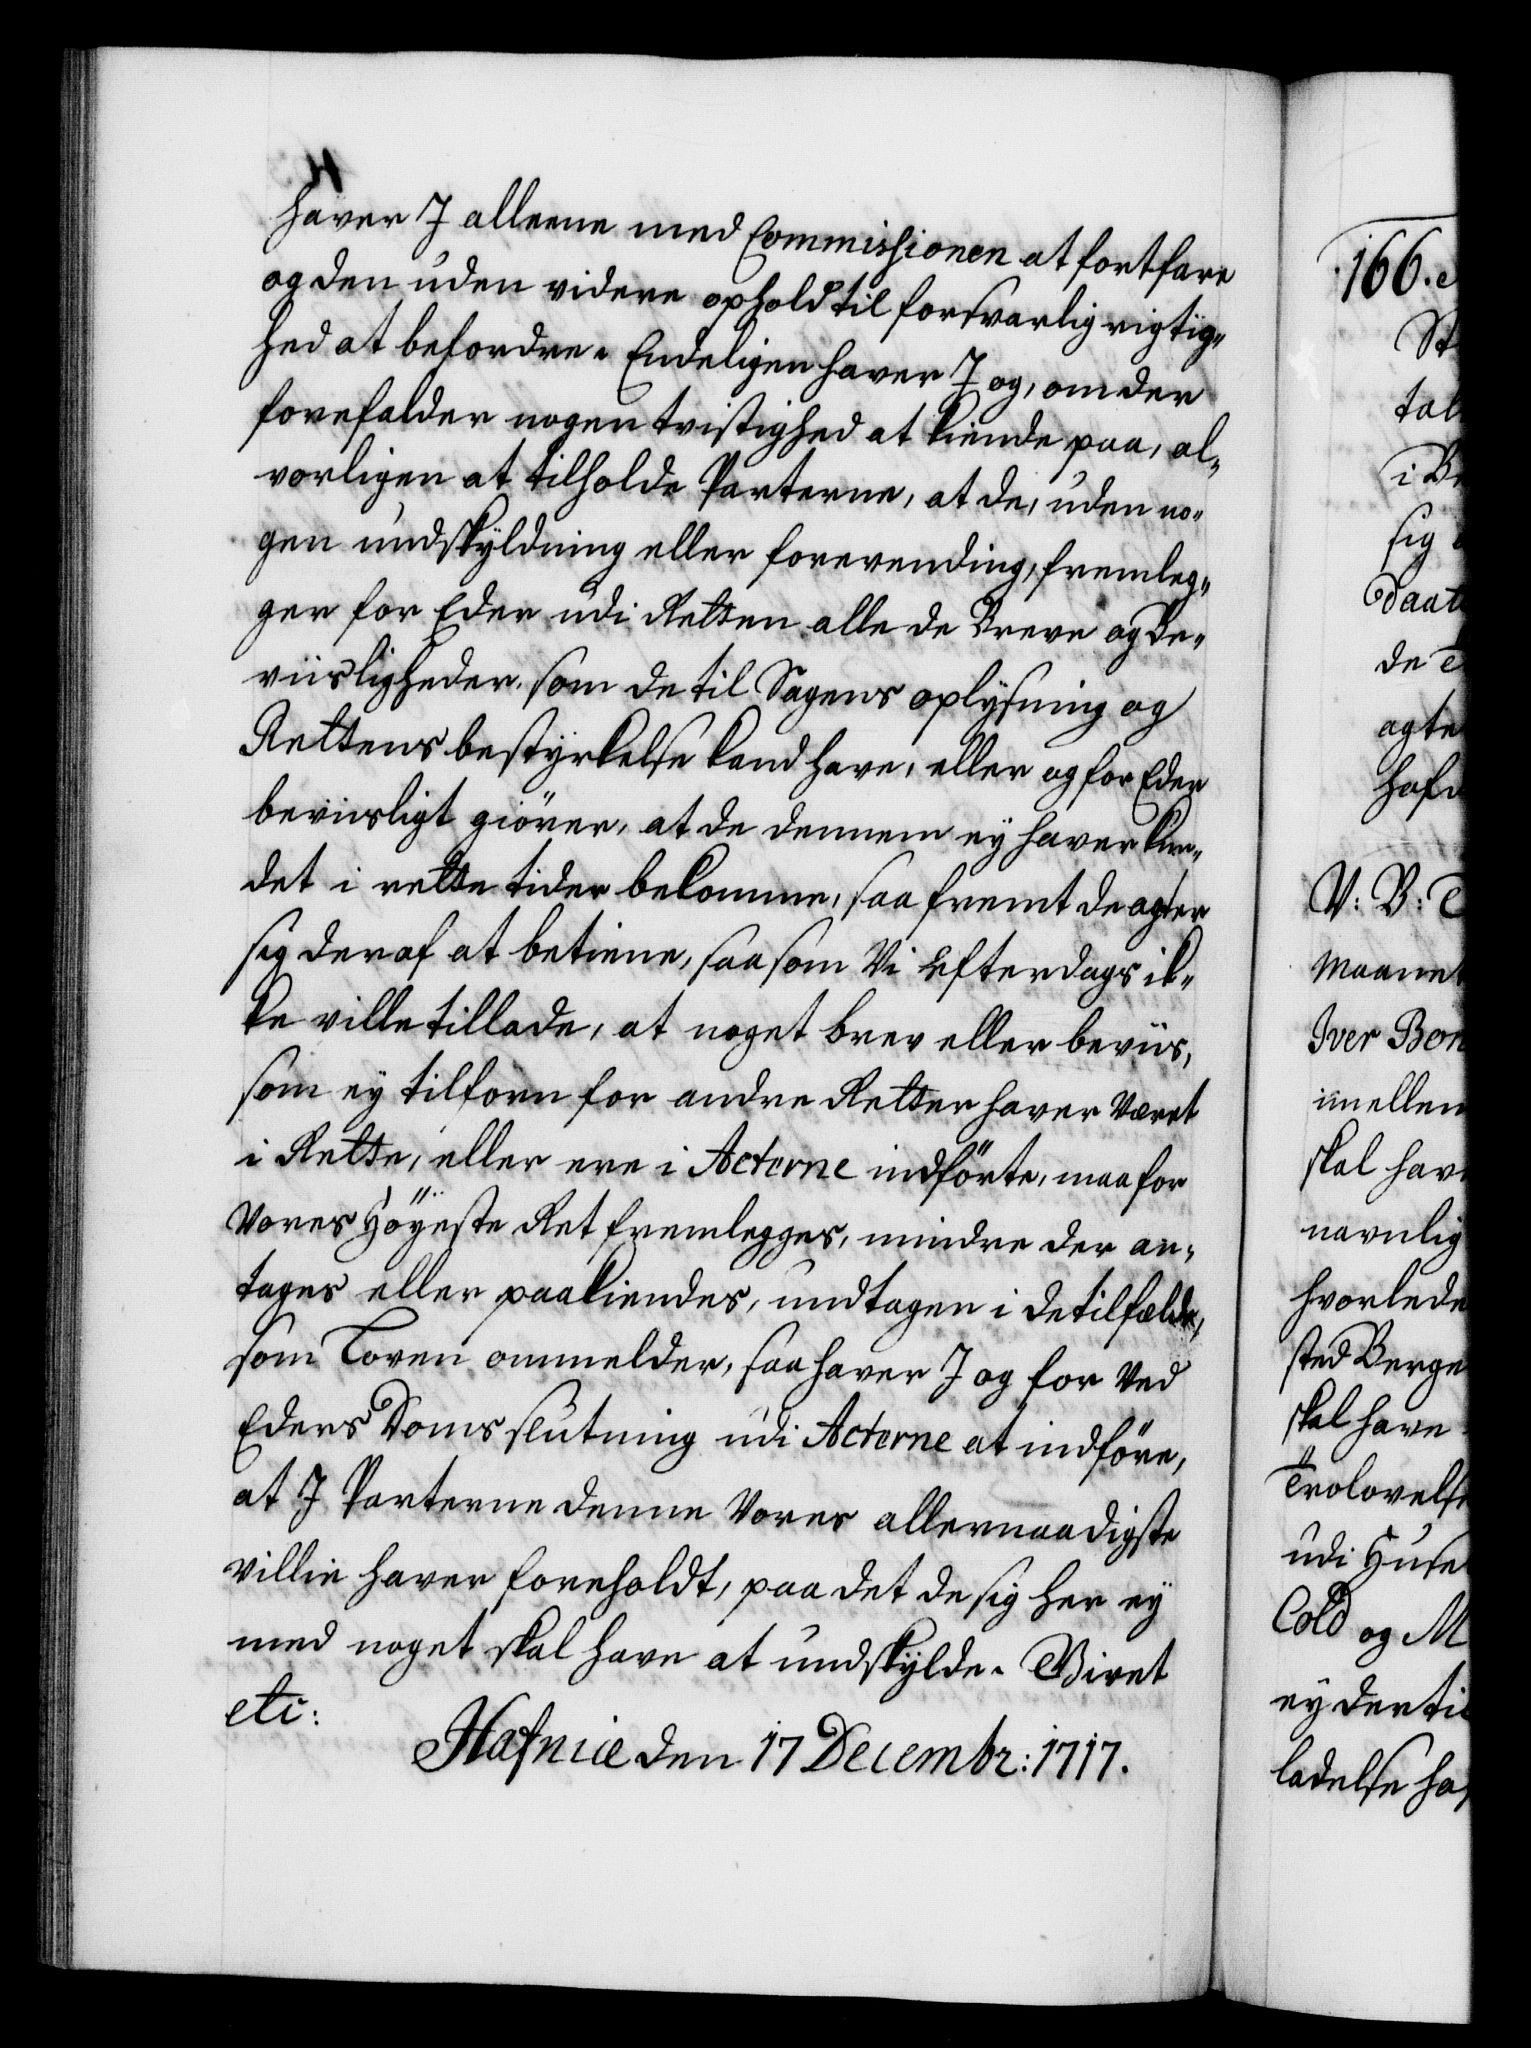 haver J alleene med Commissionen at fortfare
og den uden videre ophold til forsvarlig rigtig„
hed at befordre. Endeligen haver J og, om der
forefalder nogen tvistighed at kiende paa, al„
vorligen at tilholde Parterne, at de, uden no„
gen undskyldning eller forevending, fremleg„
ger for Eder udi Retten alle de Breve og Be„
viisligheder, som de til Sagens oplysning og
Rettens bestyrkelse kand have, eller og for Eder
beviisligt giörer, at de dennem ey haver kun„
det i rette tider bekomme, saa fremt de agter
sig deraf at betiene, saasom Vi efterdags ik„
ke ville tillade, at noget brev eller beviis,
som ey tilforn for andre Retter haver Været
i Rette, eller ere i Acterne indförte, maa for
Vores Höÿeste Ret fremlegges, mindre der an„
tages eller paakiendes, undtagen i de tilfælde,
som Loven ommelder, saa haver J og for Ved
Eders Doms slutning udi Acterne at indföre,
at J Parterne denne Vores allernaadigste
villie haver foreholdt, paa det de sig her ey
med noget skal have at undskylde. Biret
etc:
Hafniæ den 17 Decembr: 1717.
166.
St
tal
i Be
sig
Daat
de
agte
hafv
V: B:
Maane
Iver Bon
imellem
skal hav
navnlig
hvorlede
sted Berge
skal have
Trolovelse
udi Huse
Cold og M
ey der til
ladelse ha